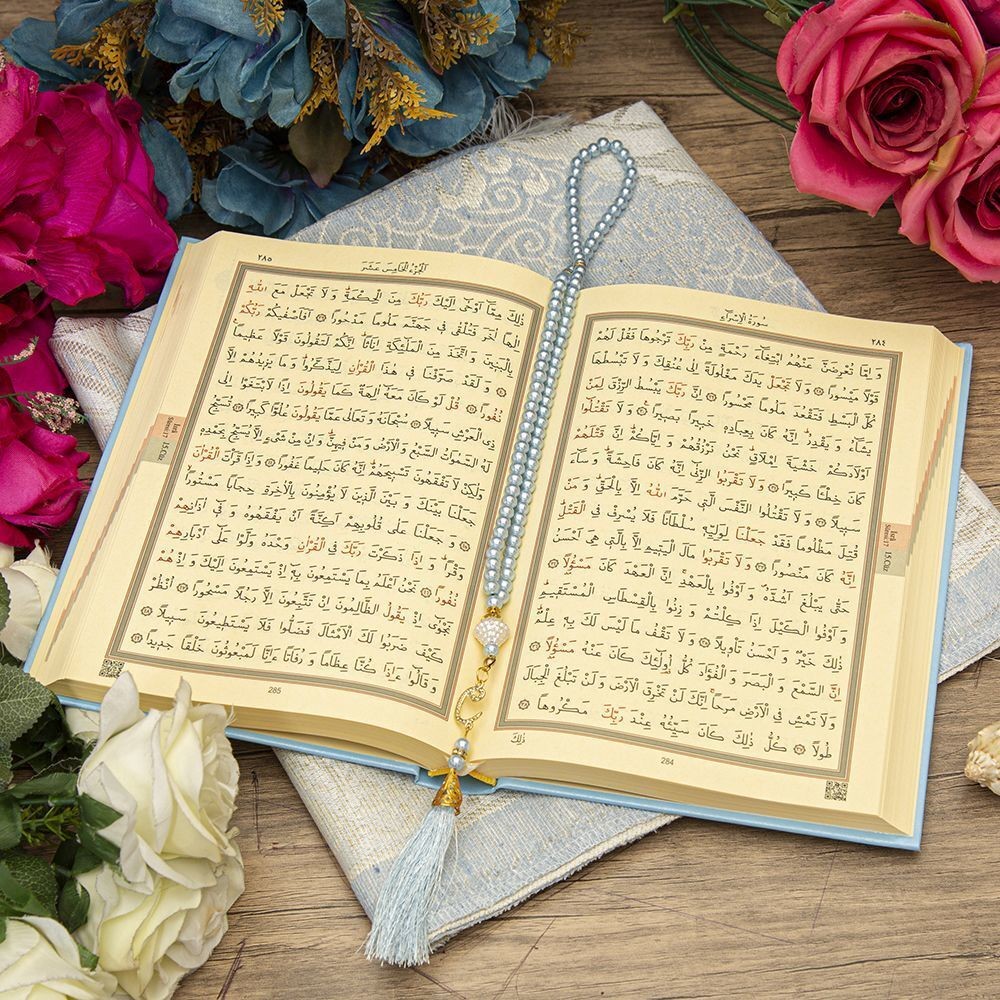 ٢٨٤
سُورَةُ الْاِسْرَٓاءِ
وَاِمَّا تُعْرِضَنَّ عَنْهُمُ ابْتِغَٓاءَ رَحْمَةٍ مِنْ رَبِّكَ تَرْجُوهَا فَقُلْ لَهُمْ
قَوْلًا مَيْسُورًا ﴿٢٨﴾ وَلَا تَجْعَلْ يَدَكَ مَغْلُولَةً اِلٰى عُنُقِكَ وَلَا تَبْسُطْهَا
كُلَّ الْبَسْطِ فَتَقْعُدَ مَلُومًا مَحْسُورًا ﴿٢٩﴾ اِنَّ رَبَّكَ يَبْسُطُ الرِّزْقَ لِمَنْ
يَشَٓاءُ وَيَقْدِرُ اِنَّهُ كَانَ بِعِبَادِهِ خَبِيرًا بَصِيرًا ﴿٣٠﴾ وَلَا تَقْتُلُٓوا
اَوْلَادَكُمْ خَشْيَةَ اِمْلَاقٍ نَحْنُ نَرْزُقُهُمْ وَاِيَّاكُمْ اِنَّ قَتْلَهُمْ
كَانَ خِطْـًٔا كَبِيرًا ﴿٣١﴾ وَلَا تَقْرَبُوا الزِّنٰٓى اِنَّهُ كَانَ فَاحِشَةً وَسَٓاءَ
سَبِيلًا ﴿٣٢﴾ وَلَا تَقْتُلُوا النَّفْسَ الَّتِي حَرَّمَ اللّٰهُ اِلَّا بِالْحَقِّ وَمَنْ
قُتِلَ مَظْلُومًا فَقَدْ جَعَلْنَا لِوَلِيِّهِ سُلْطَانًا فَلَا يُسْرِفْ فِي الْقَتْلِ
اِنَّهُ كَانَ مَنْصُورًا ﴿٣٣﴾ وَلَا تَقْرَبُوا مَالَ الْيَتِيمِ اِلَّا بِالَّتِي هِيَ اَحْسَنُ
حَتّٰى يَبْلُغَ اَشُدَّهُ وَاَوْفُوا بِالْعَهْدِ اِنَّ الْعَهْدَ كَانَ مَسْؤُلًا ﴿٣٤﴾
وَاَوْفُوا الْكَيْلَ اِذَا كِلْتُمْ وَزِنُوا بِالْقِسْطَاسِ الْمُسْتَقِيمِ
ذٰلِكَ خَيْرٌ وَاَحْسَنُ تَأْوِيلًا ﴿٣٥﴾ وَلَا تَقْفُ مَا لَيْسَ لَكَ بِهِ عِلْمٌ
اِنَّ السَّمْعَ وَالْبَصَرَ وَالْفُؤَادَ كُلُّ اُولٰٓئِكَ كَانَ عَنْهُ مَسْؤُلًا ﴿٣٦﴾
وَلَا تَمْشِ فِي الْاَرْضِ مَرَحًا اِنَّكَ لَنْ تَخْرِقَ الْاَرْضَ وَلَنْ تَبْلُغَ الْجِبَالَ
طُولًا ﴿٣٧﴾ كُلُّ ذٰلِكَ كَانَ سَيِّئُهُ عِنْدَ رَبِّكَ مَكْرُوهًا ﴿٣٨﴾
ذٰلِكَ
284
İsrâ
Sûre:17 15.Cüz
٢٨٥
اَلْجُزْءُ الْخَامِسَ عَشَرَ
ذٰلِكَ مِمَّٓا اَوْحٰٓى اِلَيْكَ رَبُّكَ مِنَ الْحِكْمَةِ وَلَا تَجْعَلْ مَعَ اللّٰهِ
اِلٰهًا اٰخَرَ فَتُلْقٰى فِي جَهَنَّمَ مَلُومًا مَدْحُورًا ﴿٣٩﴾ اَفَاَصْفٰيكُمْ رَبُّكُمْ
بِالْبَنِينَ وَاتَّخَذَ مِنَ الْمَلٰٓئِكَةِ اِنَاثًا اِنَّكُمْ لَتَقُولُونَ قَوْلًا عَظِيمًا
﴿٤٠﴾ وَلَقَدْ صَرَّفْنَا فِي هٰذَا الْقُرْاٰنِ لِيَذَّكَّرُوا وَمَا يَزِيدُهُمْ اِلَّا
نُفُورًا ﴿٤١﴾ قُلْ لَوْ كَانَ مَعَهُٓ اٰلِهَةٌ كَمَا يَقُولُونَ اِذًا لَابْتَغَوْا اِلٰى
ذِي الْعَرْشِ سَبِيلًا ﴿٤٢﴾ سُبْحَانَهُ وَتَعَالٰى عَمَّا يَقُولُونَ عُلُوًّا كَبِيرًا ﴿٤٣﴾ تُسَبِّحُ
لَهُ السَّمٰوَاتُ السَّبْعُ وَالْاَرْضُ وَمَنْ فِيهِنَّ وَاِنْ مِنْ شَيْءٍ اِلَّا يُسَبِّحُ بِحَمْدِهِ
وَلٰكِنْ لَا تَفْقَهُونَ تَسْبِيحَهُمْ اِنَّهُ كَانَ حَلِيمًا غَفُورًا ﴿٤٤﴾ وَاِذَا قَرَأْتَ الْقُرْاٰنَ
جَعَلْنَا بَيْنَكَ وَبَيْنَ الَّذِينَ لَا يُؤْمِنُونَ بِالْاٰخِرَةِ حِجَابًا مَسْتُورًا
﴿٤٥﴾ وَجَعَلْنَا عَلٰى قُلُوبِهِمْ اَكِنَّةً اَنْ يَفْقَهُوهُ وَفِٓي اٰذَانِهِمْ
وَقْرًا وَاِذَا ذَكَرْتَ رَبَّكَ فِي الْقُرْاٰنِ وَحْدَهُ وَلَّوْا عَلٰٓى اَدْبَارِهِمْ
نُفُورًا ﴿٤٦﴾ نَحْنُ اَعْلَمُ بِمَا يَسْتَمِعُونَ بِهِٓ اِذْ يَسْتَمِعُونَ اِلَيْكَ وَاِذْ هُمْ
نَجْوٰٓى اِذْ يَقُولُ الظَّالِمُونَ اِنْ تَتَّبِعُونَ اِلَّا رَجُلًا مَسْحُورًا ﴿٤٧﴾ اُنْظُرْ
كَيْفَ ضَرَبُوا لَكَ الْاَمْثَالَ فَضَلُّوا فَلَا يَسْتَطِيعُونَ سَبِيلًا ﴿٤٨﴾
وَقَالُٓوا ءَاِذَا كُنَّا عِظَامًا وَرُفَاتًا ءَاِنَّا لَمَبْعُوثُونَ خَلْقًا جَدِيدًا ﴿٤٩﴾
285
İsrâ
Sûre:17 15.Cüz